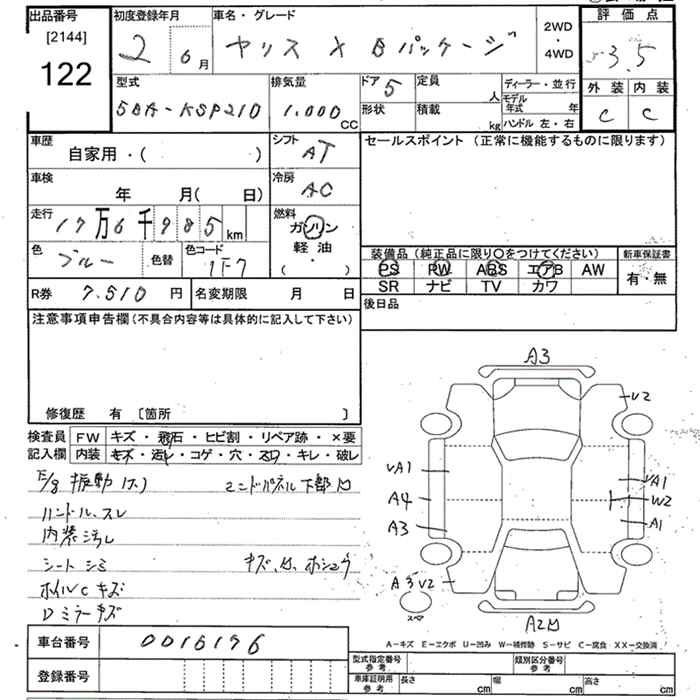 出品番号
[2144]
122
初度登録年月
2 6月
車名・グレード
ヤリス X Bパッケージ
2WD
・
4WD
評価点
3.5
外装 内装
C C
型式
5BA-KSP210
排気量
1.000 CC
ドア 5
形状
定員 人
積載 kg
ディーラー・並行
モデル年式 年
ハンドル 左・右
車歴
自家用・( )
シフト
AT
セールスポイント (正常に機能するものに限ります)
車検
年 月(日)
冷房
AC
走行
17万6千985km
燃料
ガソリン
軽油
( ・ )
色
ブルー
色替
色コード
1F7
装備品(純正品に限り〇をつけてください)
新車保証書
PS PW ABS エアB AW
有・無
SR ナビ TV カワ
R券 7.510 円
名変期限 月 日
後日品
注意事項申告欄(不具合内容等は具体的に記入して下さい)
修復歴 有 〔箇所 〕
検査員 FW キズ・飛石・ヒビ割・リペア跡・×要
記入欄 内装 キズ・汚レ・コゲ・穴・スレ・キレ・破レ
E/g 振動 (不)
エンドパネル下部凹
ハンドル.スレ
内装汚レ
シート シミ
キズ,凹,ホシュウ
ホイルC キズ
Dミラーキズ
A3
V2
VA1
A4
A3
VA1
W2
A1
A3V2
スペア
A2凹
車台番号 0016196
登録番号
A-キズ E-エクボ U-凹み W-補修跡 S-サビ C-腐食 XX-交換済
型式指定番号
参考
類別区分番号
参考
車庫証明用
参考
長さ cm
幅 cm
高さ cm